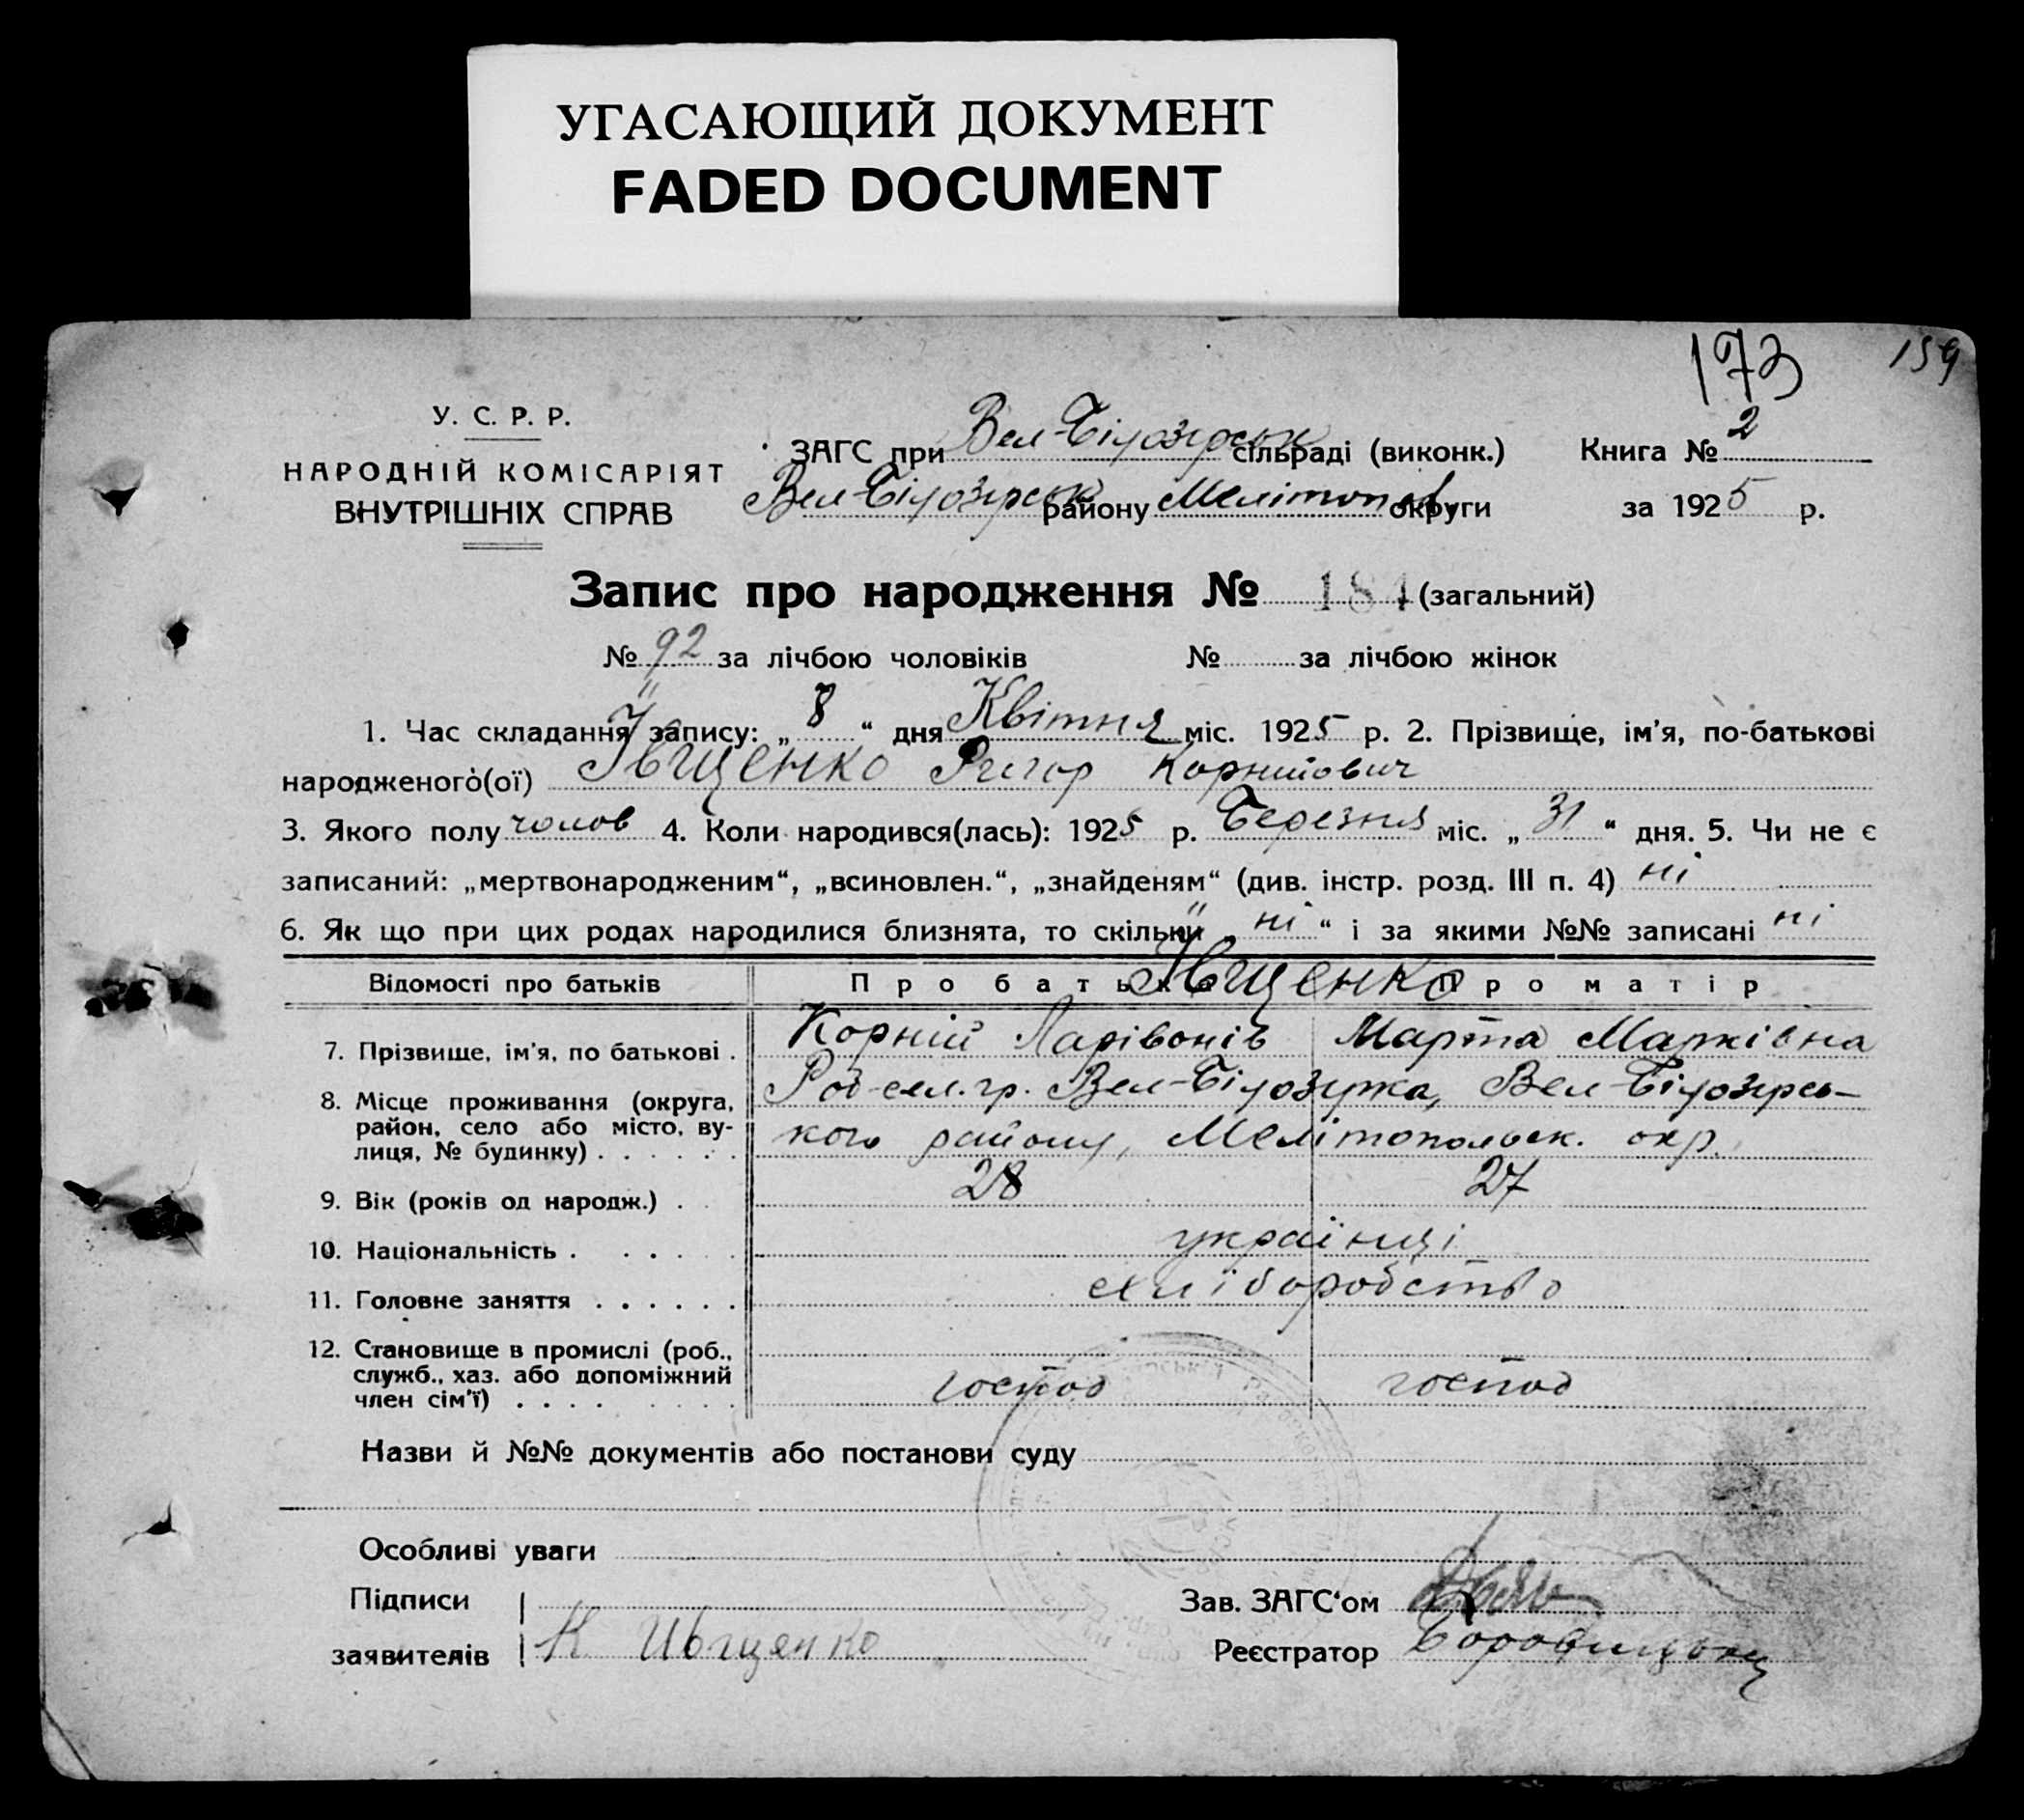 УГАСАЮЩИЙ ДОКУМЕНТ
FADED DOCUMENT
173 159
У. С. Р. Р.
НАРОДНІЙ КОМІСАРІЯТ
ВНУТРІШНІХ СПРАВ
ЗАГС при Вел-Білозірськ сільраді (виконк.) Книга № 2
Вел-Білозірськ району Мелітопол. округи за 1925 р.
Запис про народження № 184 (загальний)
№ 92 за лічбою чоловіків № за лічбою жінок
1. Час складання запису: „ 8 “ дня Квітня міс. 1925 р. 2. Прізвище, ім'я, по-батькові
народженого(ої) Івщенко Григор Корнійович
3. Якого полу чолов 4. Коли народився(лась): 1925 р. Березня міс. „ 31 “ дня. 5. Чи не є
записаний: „мертвонародженим“, „всиновлен.“, „знайденям“ (див. інстр. розд. III п. 4) ні
6. Як що при цих родах народилися близнята, то скільки „ ні “ і за якими №№ записані ні
Відомості про батьків Про батька Про матір
Івщенко
7. Прізвище, ім'я, по батькові . Корній Ларівонів Марта Марківна
8. Місце проживання (округа, район, село або місто, вулиця, № будинку) . . . . . . Вел-Білозірка, Вел-Білозірсь-
кого району, Мелітопольськ. окр.
9. Вік (років од народж.) . . 28 27
10. Національність . . . . . українці
11. Головне заняття . . . . . . хліборобство
12. Становище в промислі (роб.,
служб., хаз. або допоміжний
член сім'ї) . . . . господ господ
Назви й №№ документів або постанови суду
Особливі уваги
Підписи Зав. ЗАГС‘ом
заявителів К Ивщенко Реєстратор